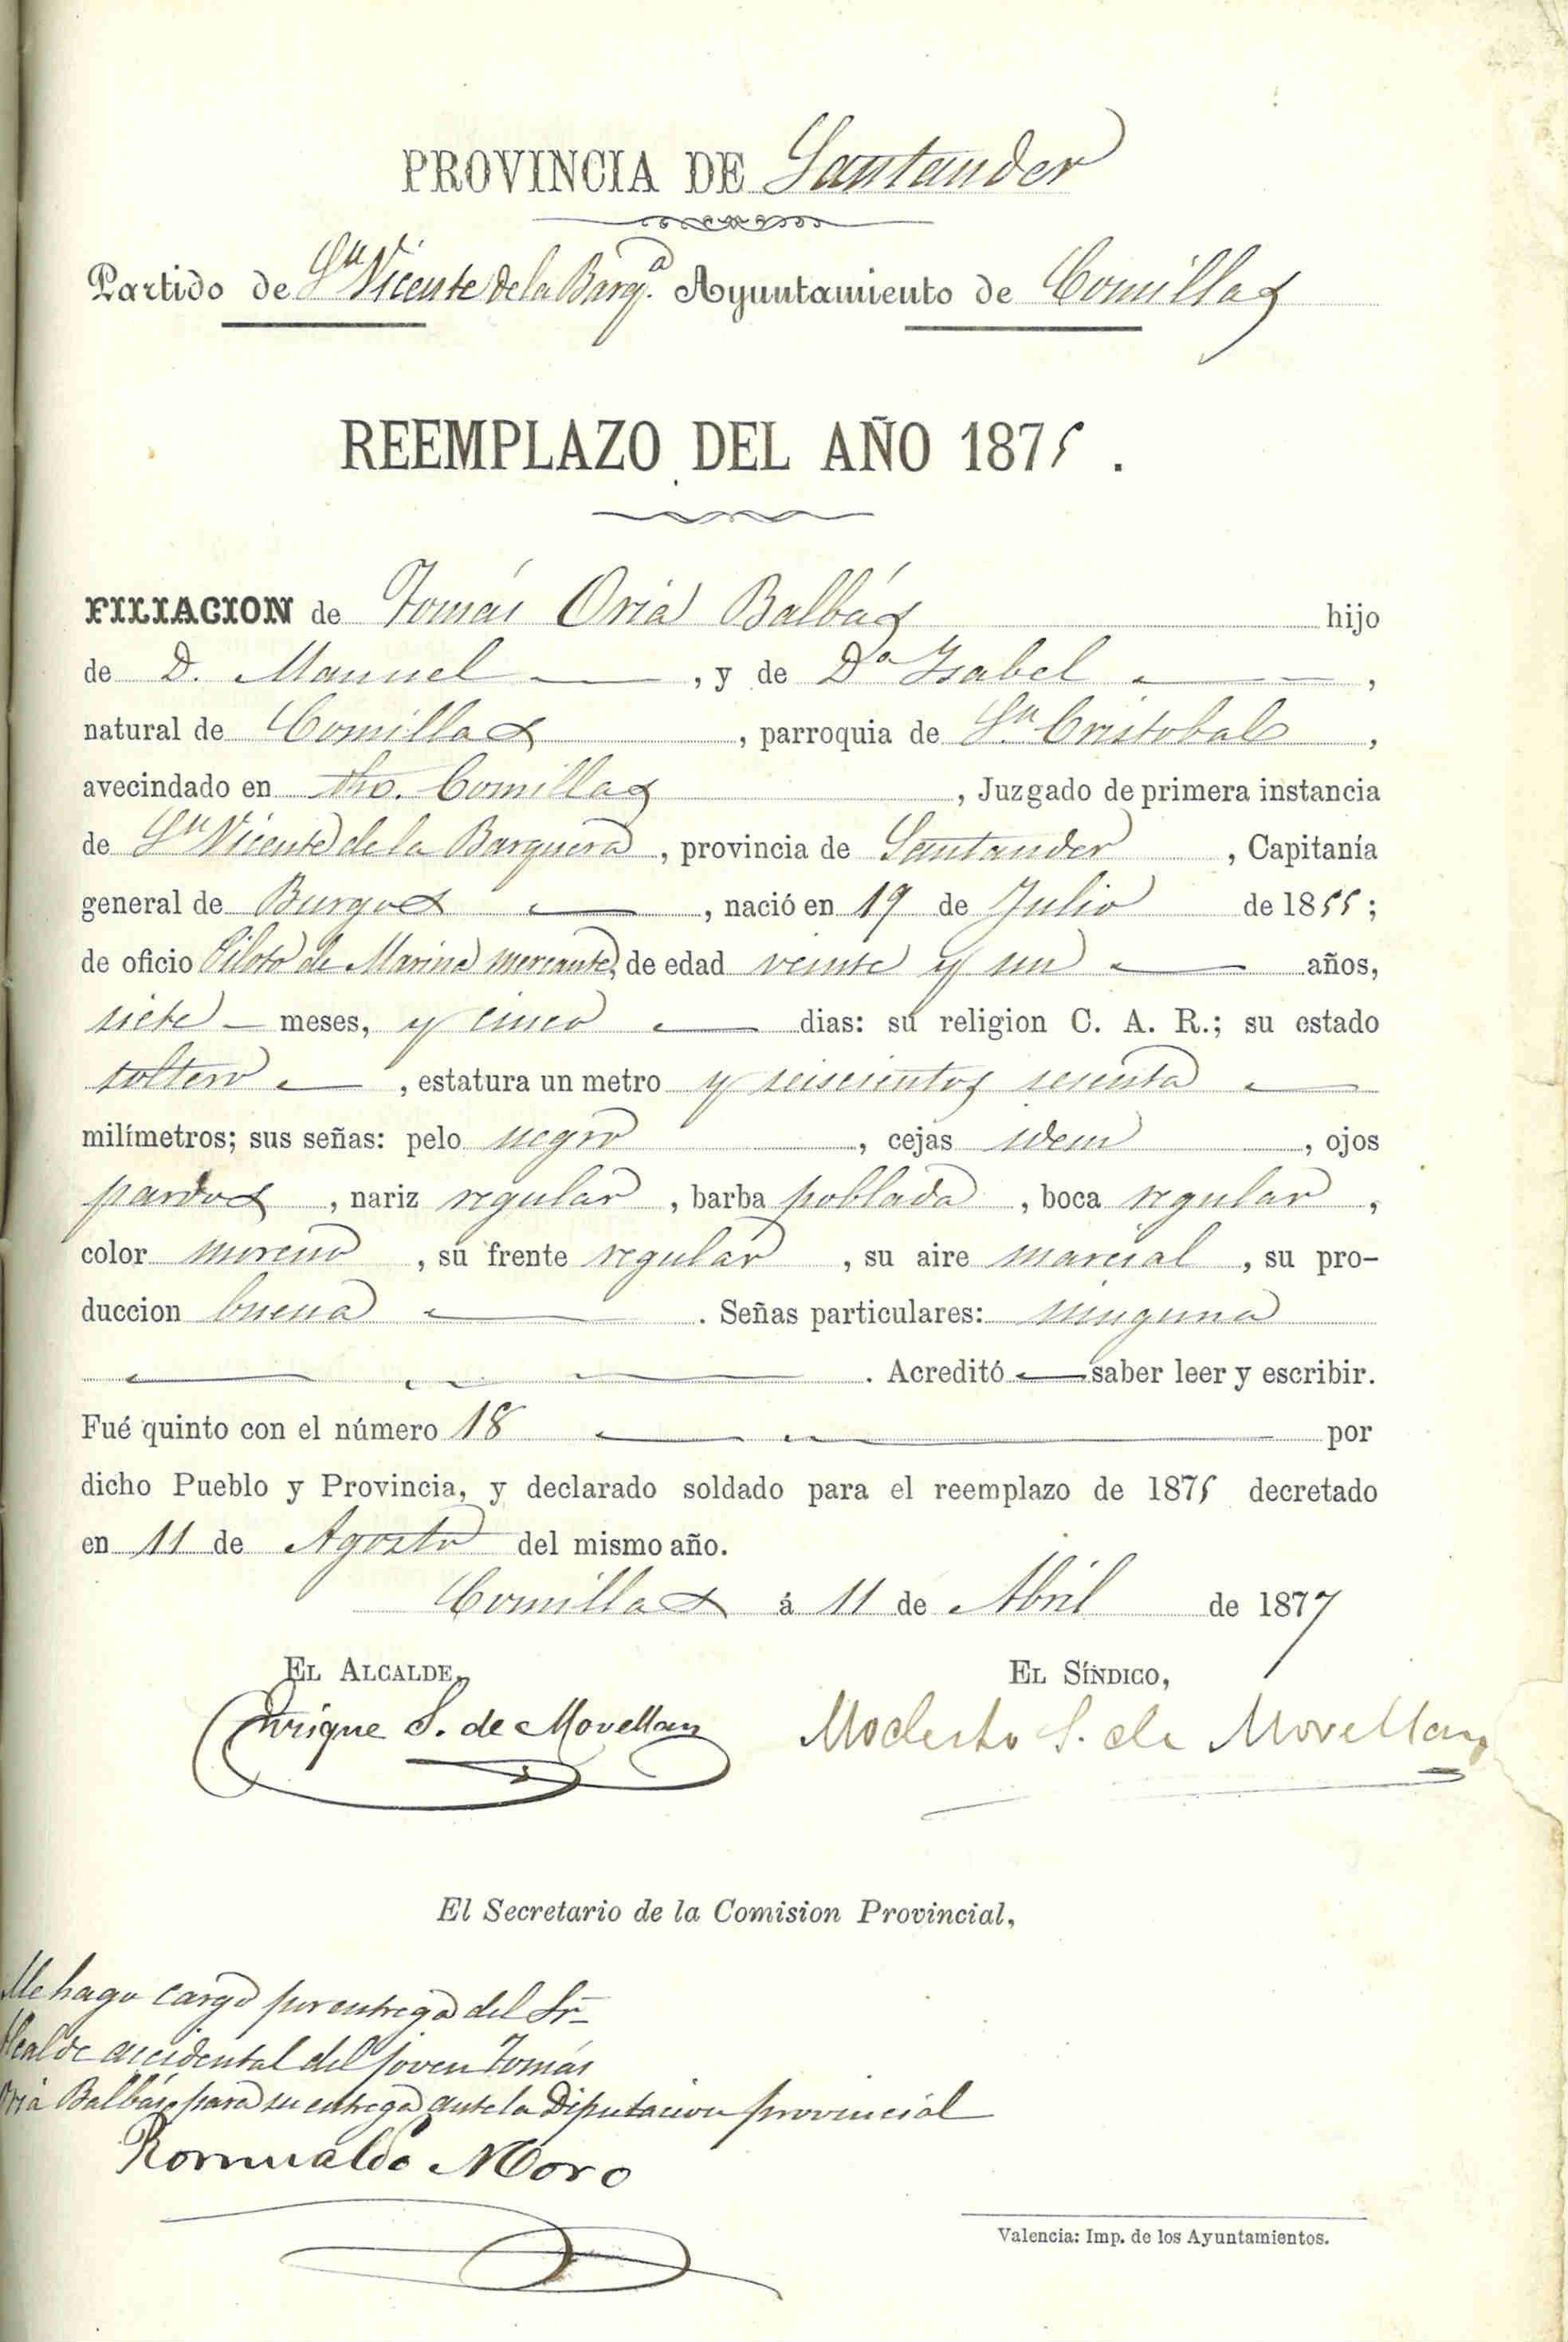 PROVINCIA DE Santander
Partido de Sn Vicente de la Barqª. Ayuntamiento de Comillas
REEMPLAZO DEL AÑO 1875.
FILIACION de Tomás Oria Balbás hijo
de D. Manuel, y de Dª Isabel,
natural de Comillas, parroquia de Sn. Cristobal,
avecindado en dho. Comillas, Juzgado de primera instancia
de Sn Vicente de la Barquera, provincia de Santander, Capitanía
general de Burgos, nació en 19 de Julio de 1855;
de oficio Piloto de Marina mercante, de edad veinte y un años,
siete meses, y cinco dias: su religion C. A. R.; su estado
soltero, estatura un metro y seiscientos sesenta
milímetros; sus señas: pelo negro, cejas idem, ojos
pardos, nariz regular, barba poblada, boca regular,
color moreno, su frente regular, su aire marcial, su pro-
duccion buena. Señas particulares: ninguna
. Acreditó saber leer y escribir.
Fué quinto con el número 18 por
dicho Pueblo y Provincia, y declarado soldado para el reemplazo de 1875 decretado
en 11 de Agosto del mismo año.
Comillas á 11 de Abril de 1877
EL ALCALDE, EL SÍNDICO,
Enrique S. de Movellan Modesto S. de Movellan
El Secretario de la Comision Provincial,
Me hago cargo por entrega del Sr
Alcalde accidental del joven Tomás
Oria Balbás para su entrega ante la Diputacion provincial
Romualdo Moro
Valencia: Imp. de los Ayuntamientos.